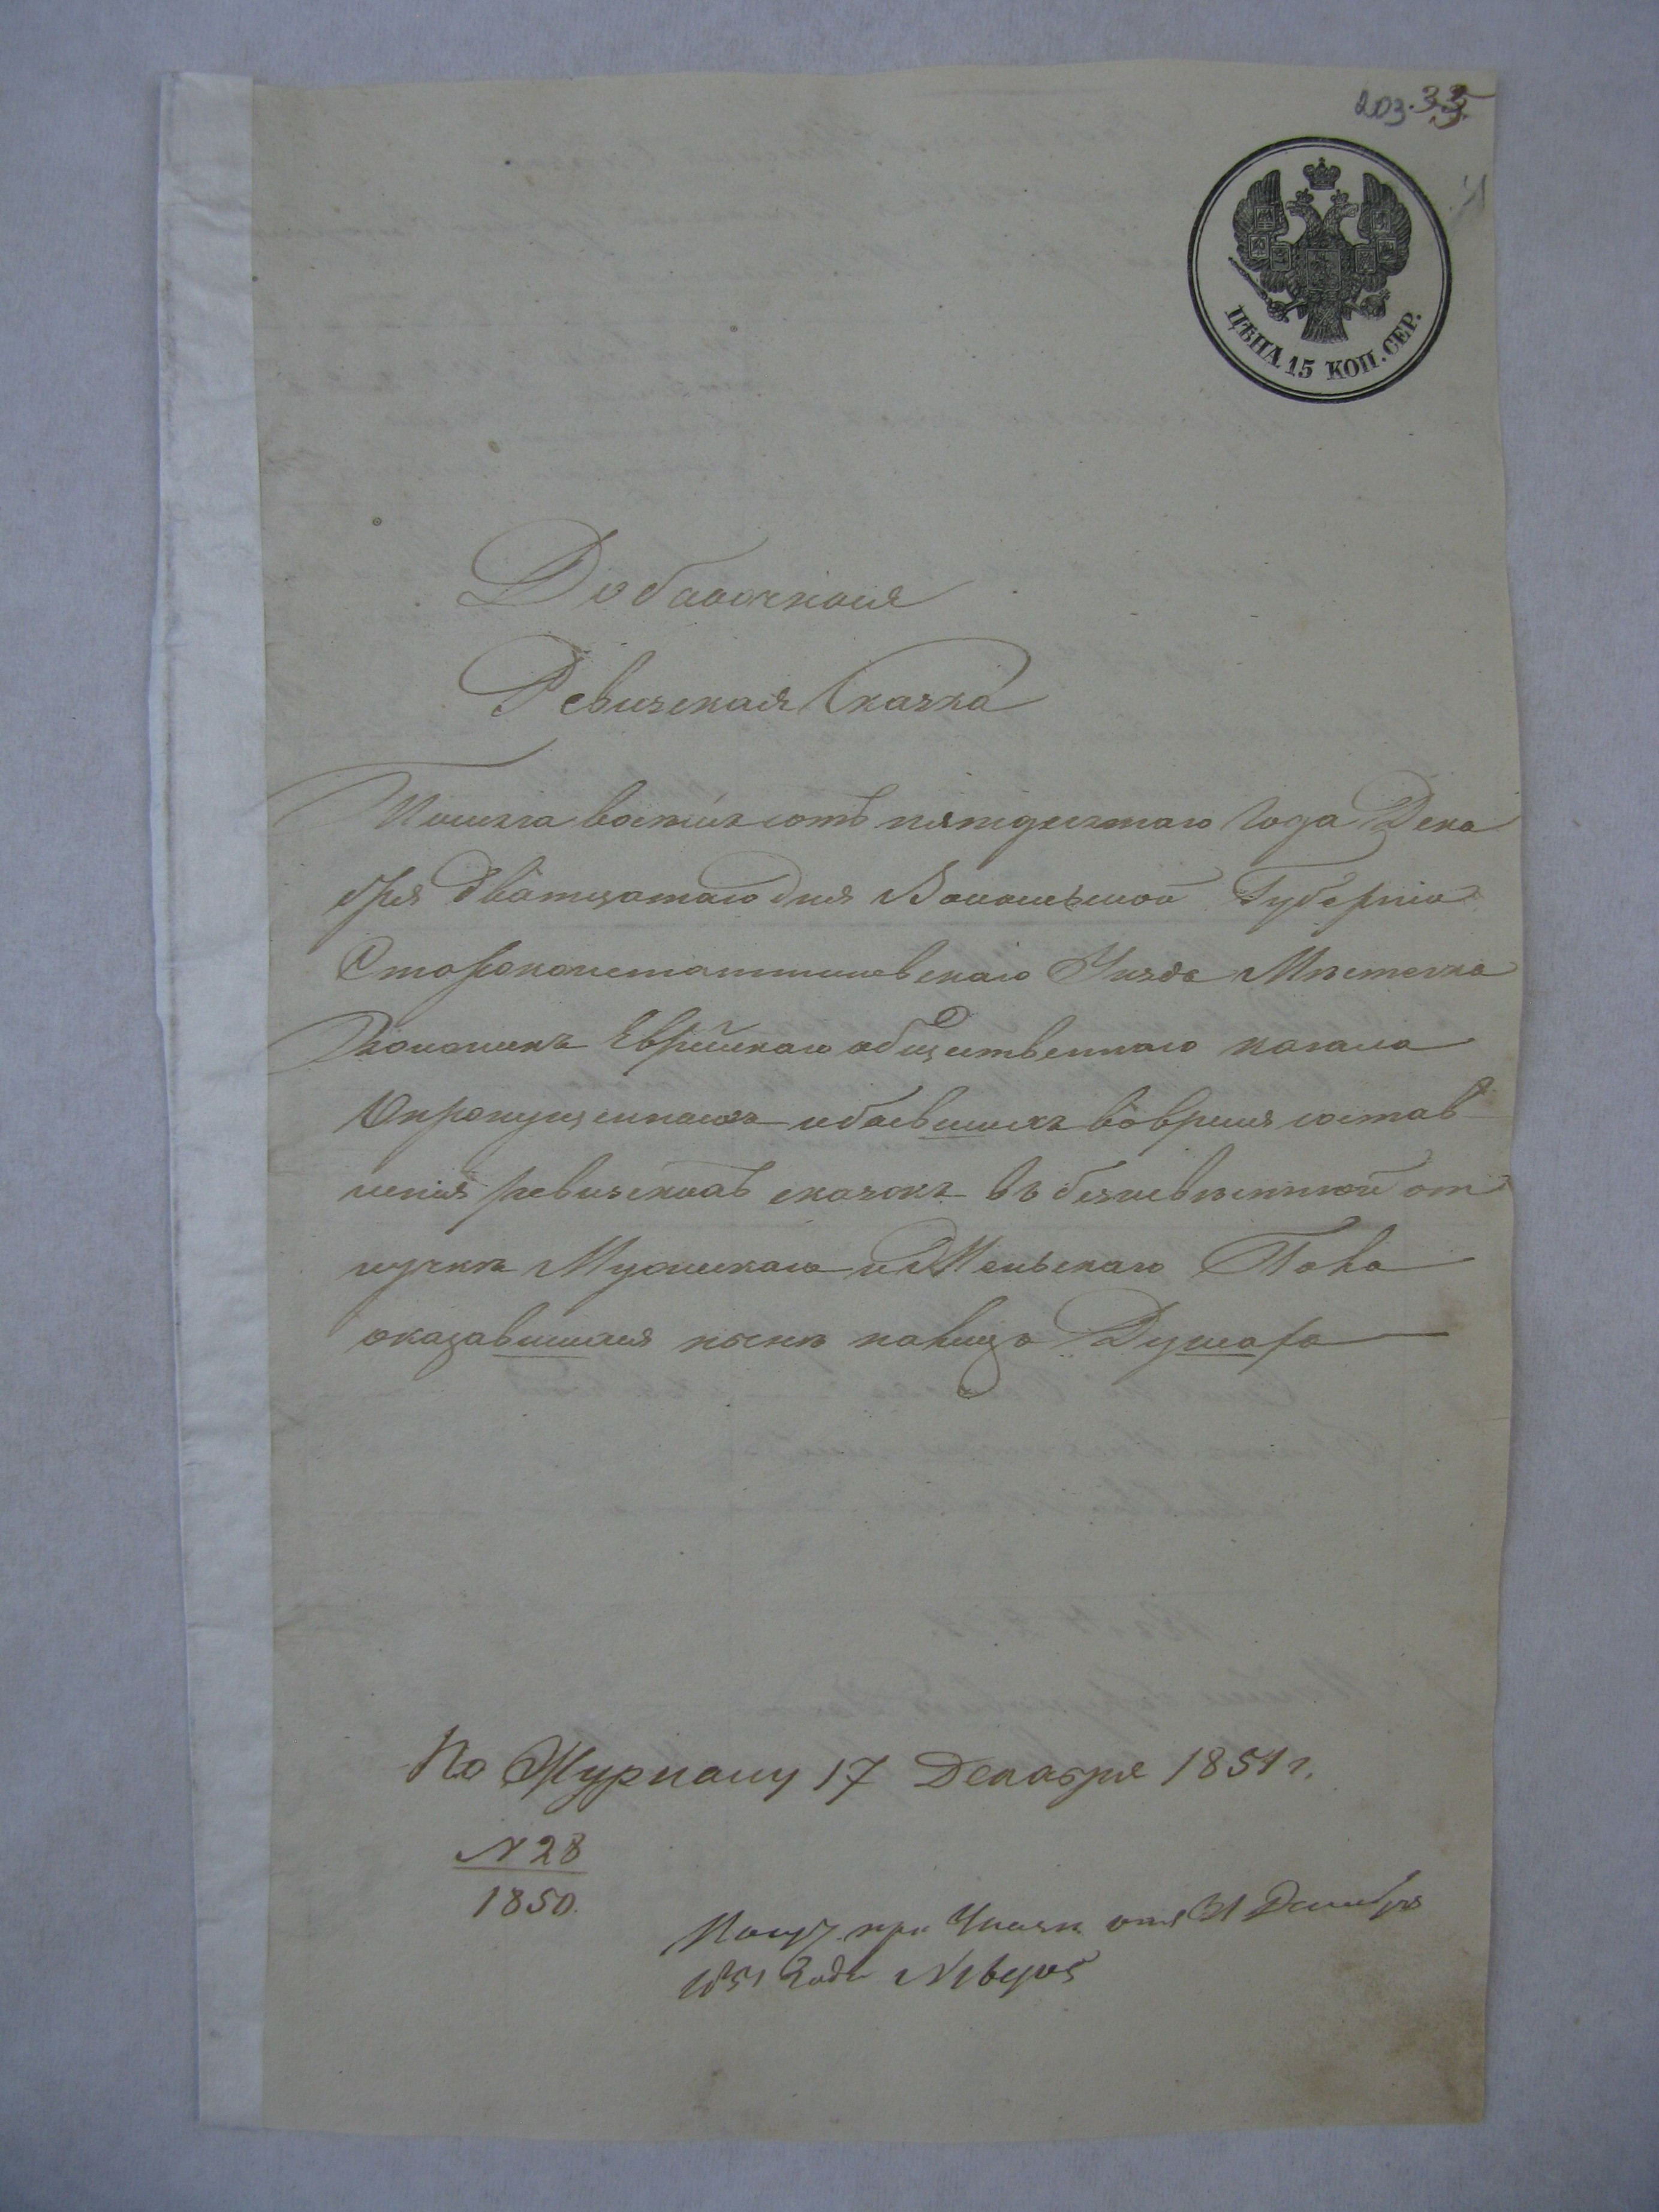 203. 33
ЦѢНА 15 КОП. СЕР.
Добавочная
Ревизская Сказка
Тысяча восемьсотъ пятдесятаго Года Дека
бря Дватцатаго дня Волынской Губерніи
Староконстантиновскаго Уѣзда Мѣстечка
Еврейскаго общественнаго кагала
О пропущенныхъ и бывшихъ во время состав
ленія ревизскихъ сказокъ въ безизвѣстной от
лучкѣ Мужескаго и Женскаго Пола
оказавшихся нынѣ налицо Душахъ
По Журналу 17 Декабря 1851 г.
N 28
1850.
при отъ 31 Декабря
1851 Года